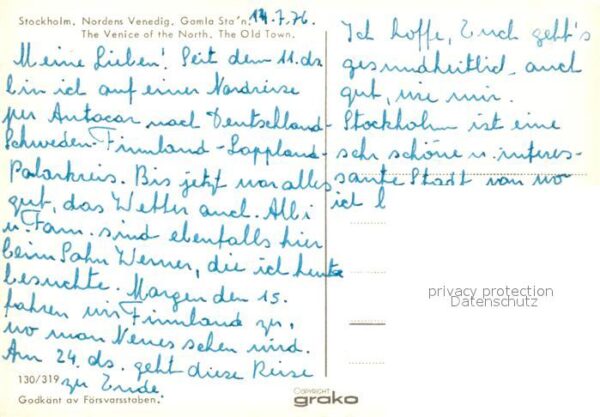 Stockholm, Nordens Venedig. Gamla Sta'n.
The Venice of the North, The Old Town.
14.7.76.
Meine Lieben! Seit dem 11. ds
bin ich auf einer Nordreise
per Autocar nach Deutschland-
Schweden-Finnland-Lappland-
Polarkreis. Bis jetzt war alles
gut, das Wetter auch. Albi
u. Fam. sind ebenfalls hier
beim Sohn Werner, die ich heute
besuchte. Morgen den 15.
fahren wir Finnland zu,
wo man Neues sehen wird.
Am 24. ds. geht diese Reise
zu Ende.
Ich hoffe, Euch geht's
gesundheitlich auch
gut, wie mir.
Stockholm ist eine
sehr schöne u. interes-
sante Stadt von wo
ich l
privacy protection
Datenschutz
130/319
Godkänt av Försvarsstaben.
COPYRIGHT
grako